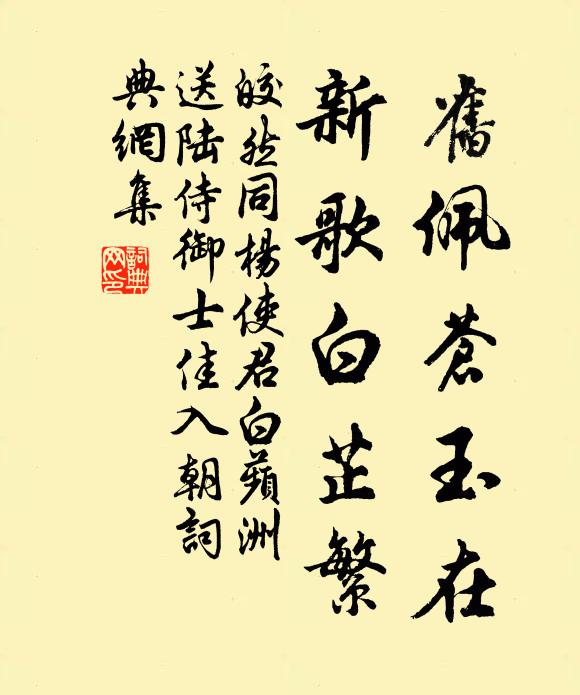 舊佩蒼玉在
新歌白芷繁
皎然同楊使君白蘋洲
送陆侍御士佳入朝詞
典網集
詞典網印